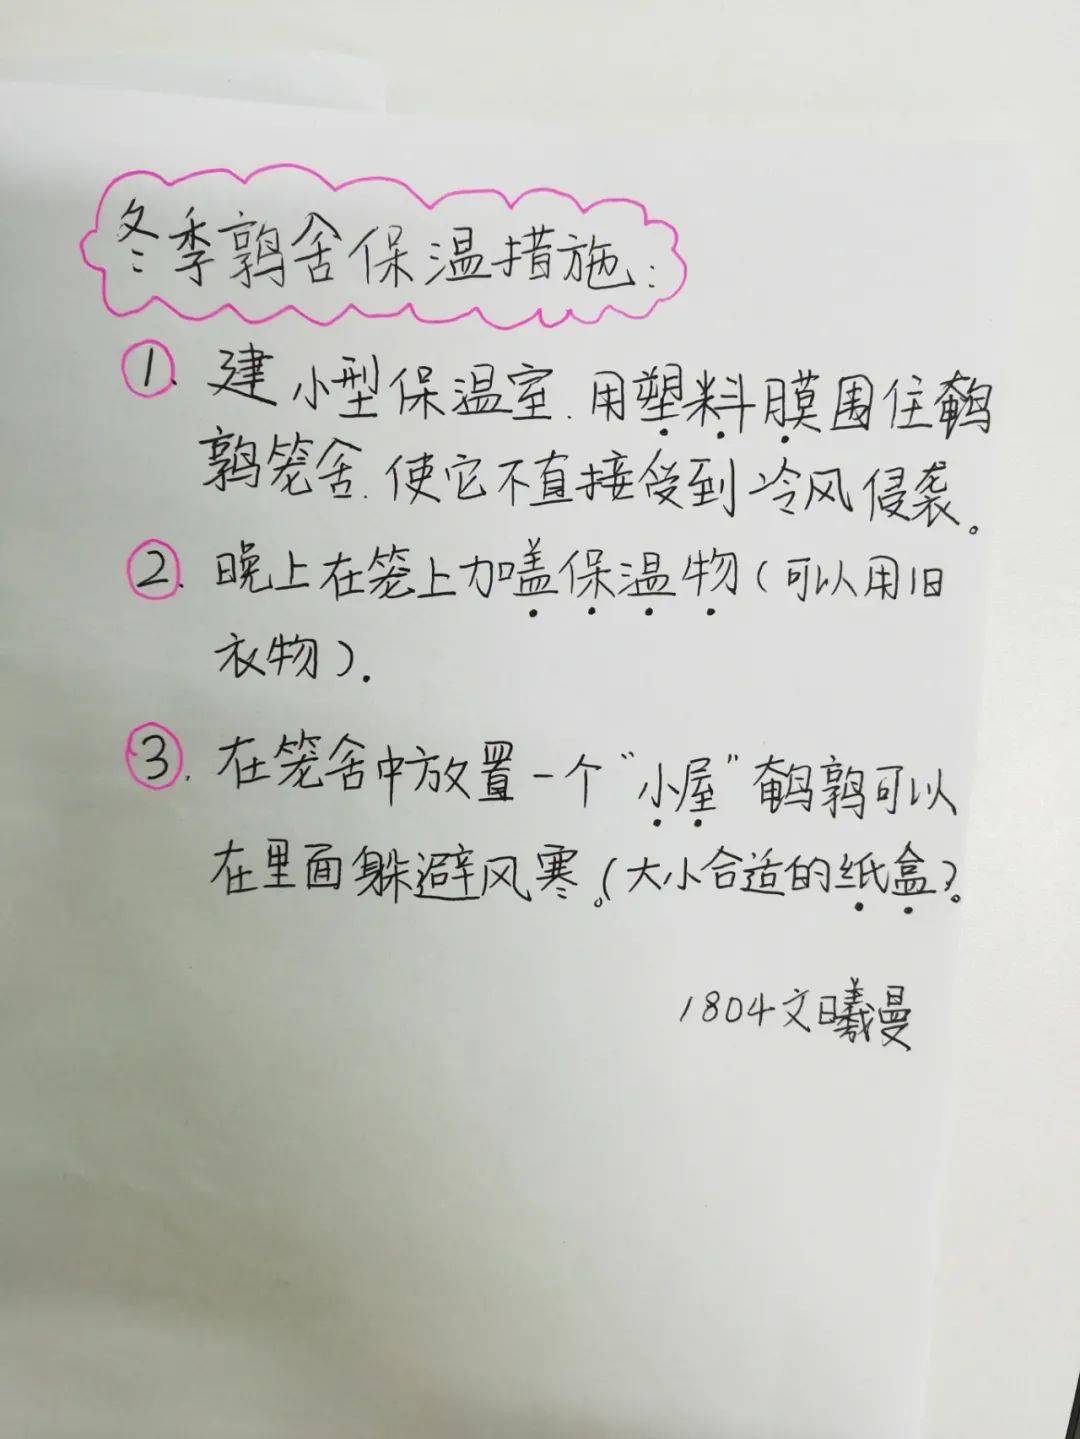 冬季鹑舍保温措施:
①. 建小型保温室.用塑料膜围住鹌
鹑笼舍.使它不直接受到冷风侵袭。
②. 晚上在笼上加盖保温物(可以用旧
衣物).
③. 在笼舍中放置一个"小屋"鹌鹑可以
在里面躲避风寒。(大小合适的纸盒)。
1804文曦曼